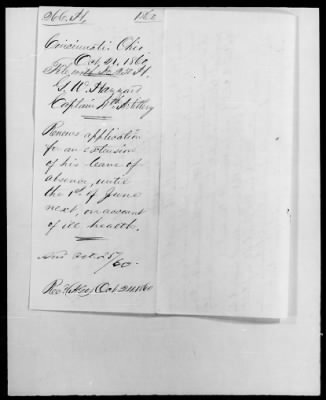 266. H. 1860
Cincinnati, Ohio
Oct. 21, 1860,
File with 230 H.
G. W. Hazzard
Captain 4th Artillery
Renews application
for an extension
of his leave of
absence, until
the 1st of June
next, on account
of ill health.
Oct 25/60.
Oct 24 1860